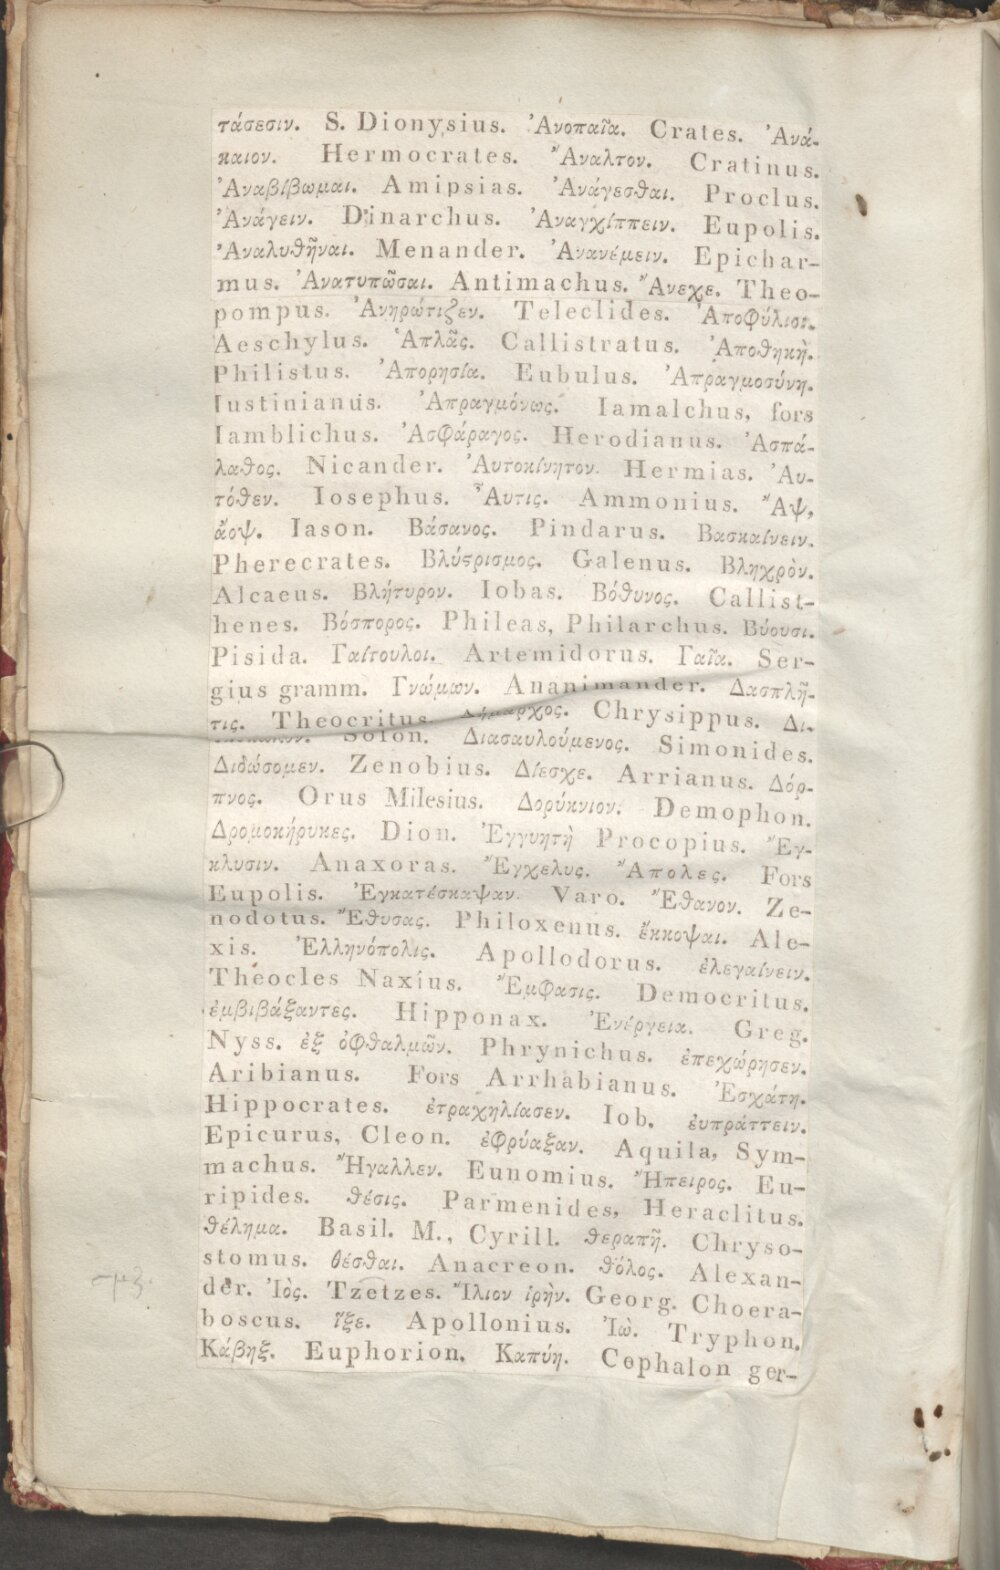 τάσεσιν. S. Dionysius. Ἀνοπαῖα. Crates. Ἀνά-
καιον. Hermocrates. Ἄναλτον. Cratinus.
Ἀναβίβωμαι. Amipsias. Ἀνάγεσθαι. Proclus.
Ἀνάγειν. Dinarchus. Ἀναγχίππειν. Eupolis.
Ἀναλυθῆναι. Menander. Ἀνανέμειν. Epichar-
mus. Ἀνατυπῶσαι. Antimachus. Ἄνεχε. Theo-
pompus. Ἀνηρώτιζεν. Teleclides. Ἀποφύλιοι.
Aeschylus. Ἁπλᾶς. Callistratus. Ἀποθηκὴ.
Philistus. Ἀπορησία. Eubulus. Ἀπραγμοσύνη.
Iustinianus. Ἀπραγμόνως. Iamalchus, fors
Iamblichus. Ἀσφάραγος. Herodianus. Ἀσπά-
λαθος. Nicander. Ἀυτοκίνητον. Hermias. Ἀυ-
τόθεν. Iosephus. Ἆυτις. Ammonius. Ἄψ,
ἄοψ. Iason. Βάσανος. Pindarus. Βασκαίνειν.
Pherecrates. Βλύςρισμος. Galenus. Βληχρὸν.
Alcaeus. Βλήτυρον. Iobas. Βόθυνος. Callist-
henes. Βόσπορος. Phileas, Philarchus. Βύουσι.
Pisida. Γαίτουλοι. Artemidorus. Γαῖα. Ser-
gius gramm. Γνώμων. Ananimander. Δασπλῆ-
τις. Theocritus. Δήμαρχος. Chrysippus. Δι-
Solon. Διασαυλούμενος. Simonides.
Διδώσομεν. Zenobius. Δίεσχε. Arrianus. Δόρ-
πνος. Orus Milesius. Δορύκνιον. Demophon.
Δρομοκήρυκες. Dion. Ἐγγυητὴ Procopius. Ἔγ-
κλυσιν. Anaxoras. Ἔγχελυς. Ἄπολες. Fors
Eupolis. Ἐγκατέσκαψαν. Varo. Ἔθανον. Ze-
nodotus. Ἔθυσας. Philoxenus. ἔκκοψαι. Ale-
xis. Ἑλληνόπολις. Apollodorus. ἐλεγαίνειν.
Theocles Naxius. Ἔμφασις. Democritus.
ἐμβιβάξαντες. Hipponax. Ἐνέργεια. Greg.
Nyss. ἐξ ὀφθαλμῶν. Phrynichus. ἐπεχώρησεν.
Aribianus. Fors Arrhabianus. Ἐσχάτη.
Hippocrates. ἐτραχηλίασεν. Iob. ἐυπράττειν.
Epicurus, Cleon. ἐφρύαξαν. Aquila, Sym-
machus. Ἤγαλλεν. Eunomius. Ἤπειρος. Eu-
ripides. θέσις. Parmenides, Heraclitus.
θέλημα. Basil. M., Cyrill. θεραπῆ. Chryso-
stomus. θέσθαι. Anacreon. θόλος. Alexan-
der. Ἰὸς. Tzetzes. Ἴλιον ἱρὴν. Georg. Choera-
boscus. ἷξε. Apollonius. Ἰὼ. Tryphon.
Κάβηξ. Euphorion. Καπύη. Cephalon ger-